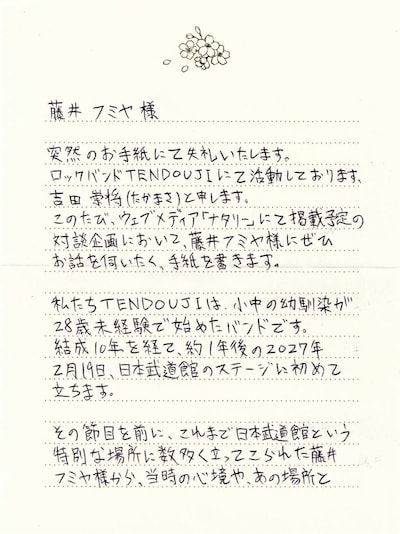 藤井 フミヤ 様
突然のお手紙にて失礼いたします。
ロックバンドTENDOUJIにて活動しております、
吉田 崇将(たかまさ)と申します。
このたび、ウェブメディア「ナタリー」にて掲載予定の
対談企画において、藤井フミヤ様にぜひ
お話を伺いたく、手紙を書きます。
私たちTENDOUJIは、小中の幼馴染が
28歳未経験で始めたバンドです。
結成10年を経て、約1年後の2027年
2月19日、日本武道館のステージに初めて
立ちます。
その節目を前に、これまで日本武道館という
特別な場所に数多く立ってこられた藤井
フミヤ様から、当時の心境や、あの場所と